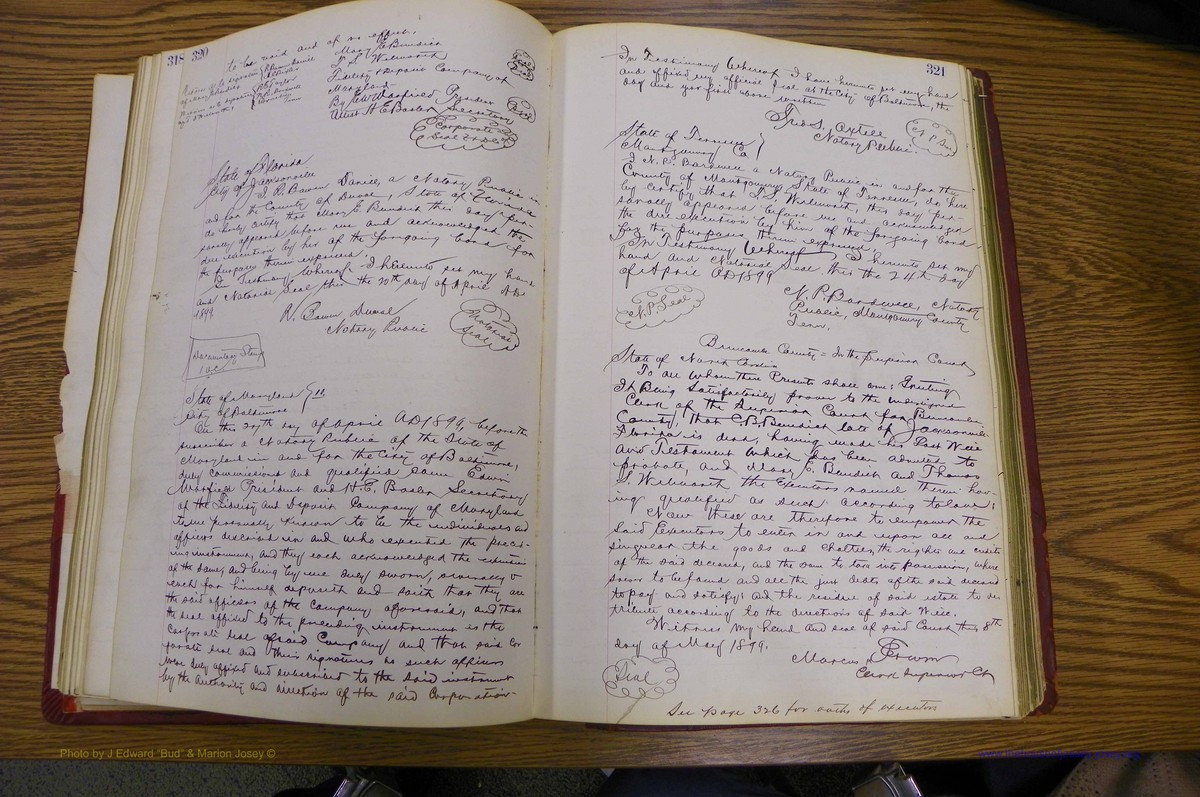 318 320
to be void and of no effect.
Mary E. Benedict
T. S. Wilworth
Fidelity & Deposit Company of
Maryland
By Edwin Warfield President
Attest H E Bosler Secretary
Seal
Corporate
Seal F & D Co
State of Florida
City of Jacksonville
I R. Bowen Daniel, a Notary Public in
and for the County of Duval, State of Florida
do hereby certify that Mary E. Benedict this day per-
sonally appeared before me and acknowledged the
due execution by her of the foregoing bond for
the purposes therein expressed.
In Testimony Whereof I hereunto set my hand
and Notarial Seal this the 20th day of April A.D.
1899
R. Bowen Daniel
Notary Public
Notarial
Seal
Documentary Stamp
10c
State of Maryland } ss.
City of Baltimore
On the 27th day of April AD 1899, before the
subscriber a Notary Public of the State of
Maryland in and for the City of Baltimore,
duly commissioned and qualified came Edwin
Warfield President and H. E. Bosler Secretary
of the Fidelity and Deposit Company of Maryland
to me personally known to be the individuals and
officers described in and who executed the preced-
ing instrument, and they each acknowledged the execution
of the same, and being by me duly sworn, severally &
each for himself deposeth and saith that they are
the said officers of the Company aforesaid, and that
the seal affixed to the preceding instrument is the
corporate seal of said Company and that said cor
porate seal and their signatures as such officers
were duly affixed and subscribed to the said instrument
by the authority and direction of the said Corporation
321
In Testimony Whereof I have hereunto set my hand
and affixed my official seal at the City of Baltimore, the
day and year first above written
Notary Public.
State of Tennessee }
Montgomery Co
I N. P. Barksdale a Notary Public in and for the
County of Montgomery State of Tennessee, do here
by certify that T. S. Wilworth, this day per-
sonally appeared before me and acknowledged
the due execution by him of the foregoing bond
for the purposes therein expressed.
In Testimony Whereof I hereunto set my
hand and Notarial Seal this the 24th day
of April AD 1899
N. P. Barksdale, Notary
Public, Montgomery County
Tenn.
N.P. Seal
Buncombe County = In the Superior Court
State of North Carolina
To all whom these Presents shall come: Greeting
It Being Satisfactorily proven to the undersigned
Clerk of the Superior Court for Buncombe
County, that C. B. Benedict late of Jacksonville
Florida is dead, having made his Last Will
and Testament which has been admitted to
probate, and Mary E. Benedict and Thomas
S. Wilworth the Executors named therein hav-
ing qualified as such according to law:
Now these are therefore to empower the
said Executors to enter in and upon all and
singular the goods and chattels, the rights and credits
of the said deceased, and the same to take into possession, where
soever to be found and all the just debts of the said deceased
to pay and satisfy; and the residue of said estate to dis
tribute according to the directions of said Will.
Witness my hand and seal of said Court this 8th
day of May 1899.
Marcus Erwin
Clerk Superior Ct
Seal
See page 326 for oaths of executors
Photo by J Edward "Bud" & Marion Josey ©